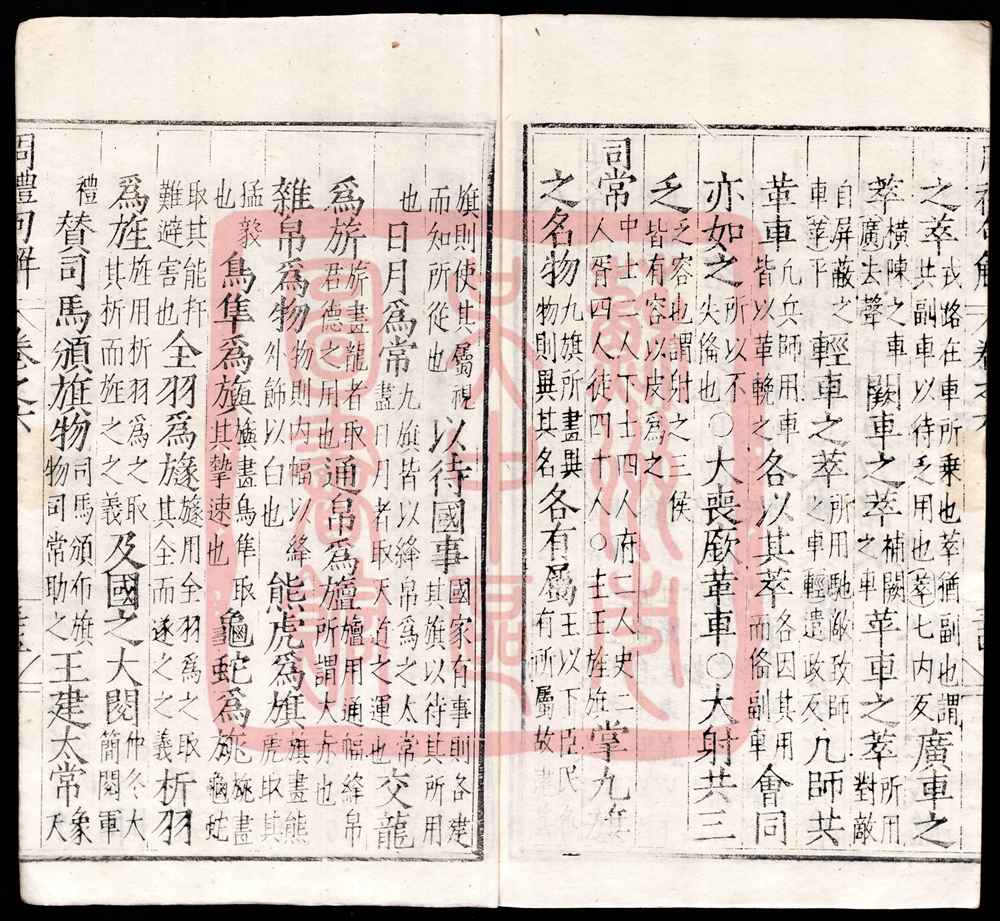 周禮句解 卷之六
之萃戎路在車所乘也萃猶副也謂共副車以待乏用也萃七內反廣車之
萃橫陳之車廣去聲闕車之萃補闕之車苹車之萃所用對敵
自屏蔽之車苹平輕車之萃所用馳敵致師之車輕遣政反凡師共
革車凡兵師用車皆以革輓之各以其萃各因其用而俻副車會同
亦如之所以不失俻也○大喪廞革車○大射共三
乏乏容也謂射之三侯皆有容以皮為之
司常中士二人下士四人府二人史二人胥四人徒四十人○主王旌旗掌九旗
之名物九旗所畫異物則異其名各有屬王以下臣民有所屬故
旗則使其屬視而知所從也以待國事國家有事則各建其旗以待其所用
也日月爲常九旗皆以絳帛爲之太常畫日月者取天道之運也交龍
爲旂旂畫龍者取君德之用也通帛爲旜旜用通幅絳帛所謂大赤也
雜帛爲物物則内幅以絳外飾以白也熊虎爲旗旗畫熊虎取其
猛毅也鳥隼爲旟旟畫鳥隼取其摯速也龜蛇爲旐旐畫龜蛇
取其能扞難避害也全羽爲旞旞用全羽爲之取其全而遂之之義析羽
爲旌旌用析羽爲之取其析而旌之之義及國之大閱仲冬大簡閱軍
禮賛司馬頒旗物司馬頒布旗物司常助之王建太常象天
周禮句解 卷之六